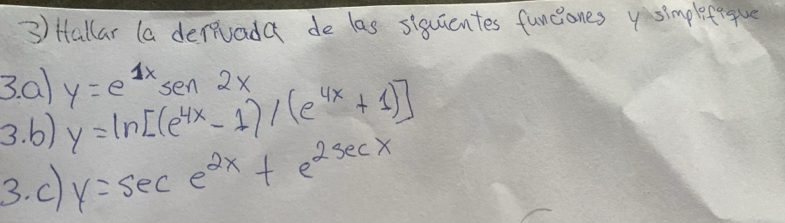 3) Hallar la derivada de las siguientes funciones y simplifique
3.a) y = e^{1x} sen 2x
3.b) y = ln[(e^{4x} - 1) / (e^{4x} + 1)]
3.c) y = sec e^{2x} + e^{2 sec x}